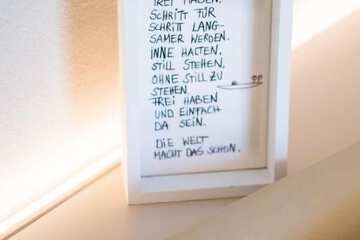 FREI HABEN.
SCHRITT FÜR
SCHRITT LANG-
SAMER WERDEN.
INNE HALTEN,
STILL STEHEN,
OHNE STILL ZU
STEHEN.
FREI HABEN
UND EINFACH
DA SEIN.
DIE WELT
MACHT DAS SCHON.